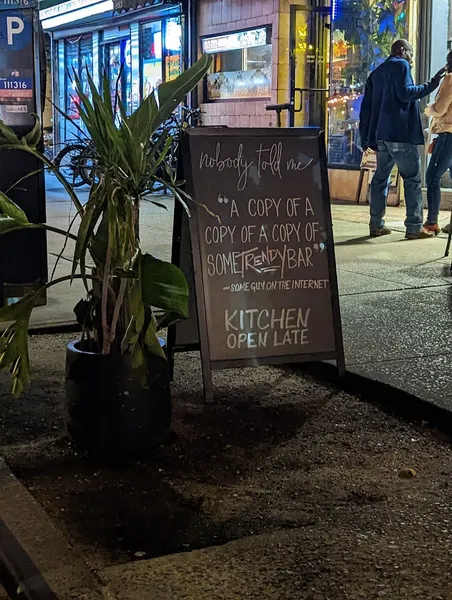 111316
P
111316
nobody told me
"A COPY OF A
COPY OF A COPY OF
SOME TRENDY BAR"
—SOME GUY ON THE INTERNET
KITCHEN
OPEN LATE